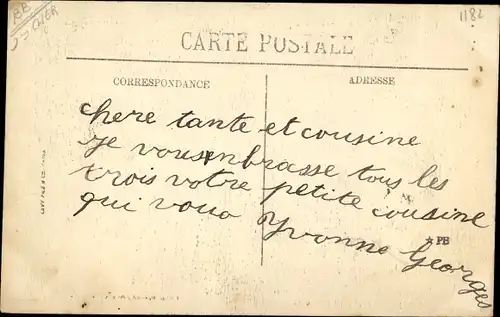 BB
J.J CHER
1182
CARTE POSTALE
CORRESPONDANCE
ADRESSE
chere tante et cousine
je vous enbrasse tous les
trois votre petite cousine
qui vous Yvonne Georges
PB